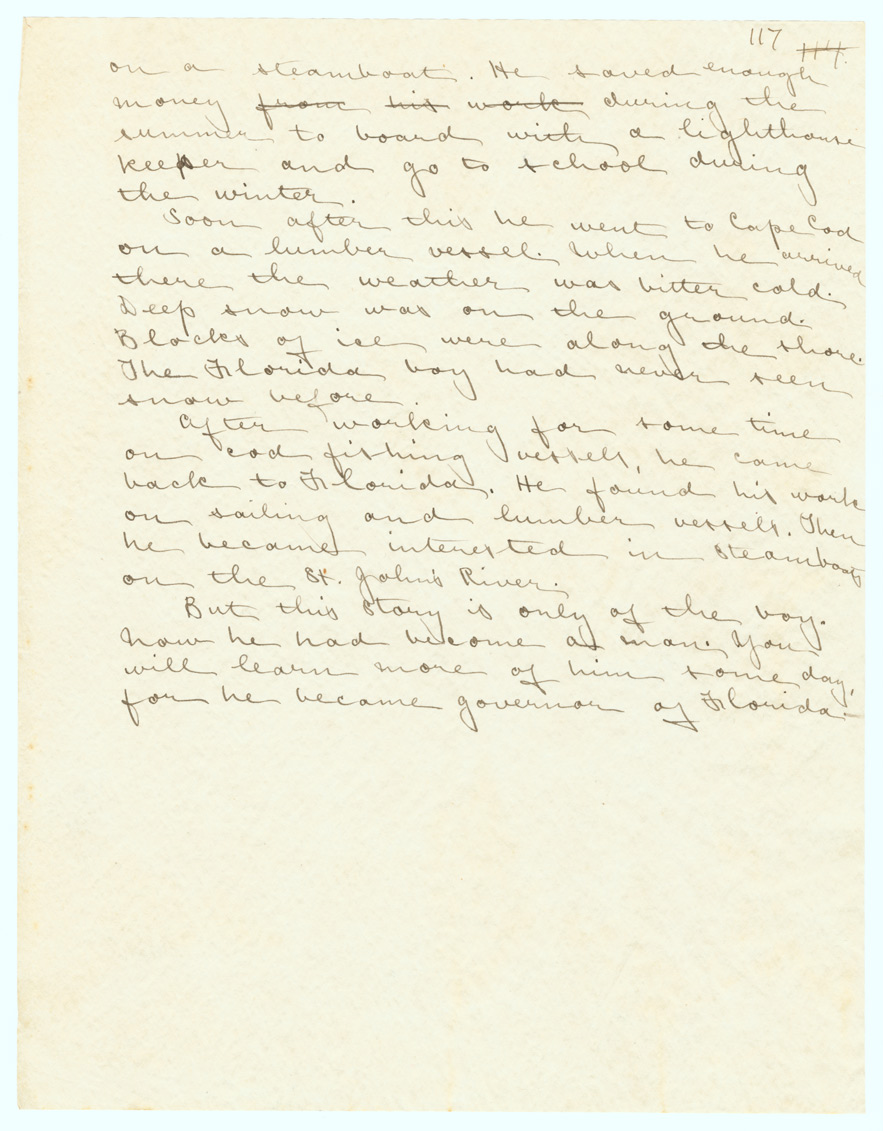 117 114.
on a steamboat. He saved enough
money from his work during the
summer to board with a lighthouse
keeper and go to school during
the winter.
Soon after this he went to Cape Cod
on a lumber vessel. When he arrived
there the weather was bitter cold.
Deep snow was on the ground.
Blocks of ice were along the shore.
The Florida boy had never seen
snow before.
After working for some time
on cod fishing vessels, he came
back to Florida. He found his work
on sailing and lumber vessels. Then
he became interested in steamboats
on the St. John's River.
But this story is only of the boy.
Now he had become a man. You
will learn more of him some day,
for he became governor of Florida.